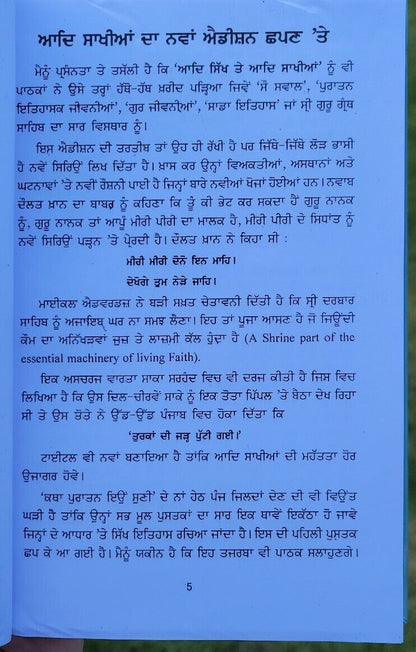 ਆਦਿ ਸਾਖੀਆਂ ਦਾ ਨਵਾਂ ਐਡੀਸ਼ਨ ਛਪਣ 'ਤੇ
ਮੈਨੂੰ ਪ੍ਰਸੰਨਤਾ ਤੇ ਤਸੱਲੀ ਹੈ ਕਿ 'ਆਦਿ ਸਿੱਖ ਤੇ ਆਦਿ ਸਾਖੀਆਂ' ਨੂੰ ਵੀ
ਪਾਠਕਾਂ ਨੇ ਉਸੇ ਤਰ੍ਹਾਂ ਹੱਥੋ-ਹੱਥ ਖ਼ਰੀਦ ਪੜ੍ਹਿਆ ਜਿਵੇਂ 'ਸੌ ਸਵਾਲ', 'ਪੁਰਾਤਨ
ਇਤਿਹਾਸਕ ਜੀਵਨੀਆਂ', 'ਗੁਰ ਜੀਵਨੀਆਂ', 'ਸਾਡਾ ਇਤਿਹਾਸ' ਜਾਂ ਸ੍ਰੀ ਗੁਰੂ ਗ੍ਰੰਥ
ਸਾਹਿਬ ਦਾ ਸਾਰ ਵਿਸਥਾਰ ਨੂੰ।
ਇਸ ਐਡੀਸ਼ਨ ਦੀ ਤਰਤੀਬ ਤਾਂ ਉਹ ਹੀ ਰੱਖੀ ਹੈ ਪਰ ਜਿੱਥੇ-ਜਿੱਥੇ ਲੋੜ ਭਾਸੀ
ਹੈ ਨਵੇਂ ਸਿਰਿਉਂ ਲਿਖ ਦਿੱਤਾ ਹੈ। ਖ਼ਾਸ ਕਰ ਉਨ੍ਹਾਂ ਵਿਅਕਤੀਆਂ, ਅਸਥਾਨਾਂ ਅਤੇ
ਘਟਨਾਵਾਂ 'ਤੇ ਨਵੀਂ ਰੌਸ਼ਨੀ ਪਾਈ ਹੈ ਜਿਨ੍ਹਾਂ ਬਾਰੇ ਨਵੀਆਂ ਖੋਜਾਂ ਹੋਈਆਂ ਹਨ। ਨਵਾਬ
ਦੌਲਤ ਖ਼ਾਨ ਦਾ ਬਾਬਰ ਨੂੰ ਕਹਿਣਾ ਕਿ ਤੂੰ ਕੀ ਭੇਟ ਕਰ ਸਕਦਾ ਹੈਂ ਗੁਰੂ ਨਾਨਕ
ਨੂੰ, ਗੁਰੂ ਨਾਨਕ ਤਾਂ ਆਪੂੰ ਮੀਰੀ ਪੀਰੀ ਦਾ ਮਾਲਕ ਹੈ, ਮੀਰੀ ਪੀਰੀ ਦੇ ਸਿਧਾਂਤ ਨੂੰ
ਨਵੇਂ ਸਿਰਿਉਂ ਪੜ੍ਹਨ 'ਤੇ ਪ੍ਰੇਰਦੀ ਹੈ। ਦੌਲਤ ਖ਼ਾਨ ਨੇ ਕਿਹਾ ਸੀ :
ਮੀਰੀ ਮੀਰੀ ਦੋਨੋ ਇਨ ਮਾਹਿ।
ਦੇਖੋਗੇ ਤੁਮ ਨੇੜੇ ਜਾਹਿ।
ਮਾਈਕਲ ਐਡਵਰਡਜ਼ ਨੇ ਬੜੀ ਸਖ਼ਤ ਚੇਤਾਵਨੀ ਦਿੱਤੀ ਹੈ ਕਿ ਸ੍ਰੀ ਦਰਬਾਰ
ਸਾਹਿਬ ਨੂੰ ਅਜਾਇਬ ਘਰ ਨਾ ਸਮਝ ਲੈਣਾ। ਇਹ ਤਾਂ ਪੂਜਾ ਆਸਣ ਹੈ ਜੋ ਜਿਊਂਦੀ
ਕੌਮ ਦਾ ਅਨਿੱਖੜਵਾਂ ਜੁਜ਼ ਤੇ ਲਾਜ਼ਮੀ ਕੱਲ ਹੁੰਦਾ ਹੈ (A Shrine part of the
essential machinery of living Faith).
ਇਕ ਅਸਚਰਜ ਵਾਰਤਾ ਸਾਕਾ ਸਰਹੰਦ ਵਿਚ ਵੀ ਦਰਜ ਕੀਤੀ ਹੈ ਜਿਸ ਵਿਚ
ਲਿਖਿਆ ਹੈ ਕਿ ਉਸ ਦਿਲ-ਚੀਰਵੇਂ ਸਾਕੇ ਨੂੰ ਇਕ ਤੋਤਾ ਪਿੱਪਲ 'ਤੇ ਬੈਠਾ ਦੇਖ ਰਿਹਾ
ਸੀ ਤੇ ਉਸ ਤੋਤੇ ਨੇ ਉੱਡ-ਉੱਡ ਪੰਜਾਬ ਵਿਚ ਹੋਕਾ ਦਿੱਤਾ ਕਿ
'ਤੁਰਕਾਂ ਦੀ ਜੜ੍ਹ ਪੁੱਟੀ ਗਈ।'
ਟਾਈਟਲ ਵੀ ਨਵਾਂ ਬਣਾਇਆ ਹੈ ਤਾਂਕਿ ਆਦਿ ਸਾਖੀਆਂ ਦੀ ਮਹੱਤਤਾ ਹੋਰ
ਉਜਾਗਰ ਹੋਵੇ।
'ਕਥਾ ਪੁਰਾਤਨ ਇਉਂ ਸੁਣੀ' ਦੇ ਨਾਂ ਹੇਠ ਪੰਜ ਜਿਲਦਾਂ ਦੇਣ ਦੀ ਵੀ ਵਿਉਂਤ
ਘੜੀ ਹੈ ਤਾਂਕਿ ਉਨ੍ਹਾਂ ਸਭ ਮੂਲ ਪੁਸਤਕਾਂ ਦਾ ਸਾਰ ਇਕ ਥਾਵੇਂ ਇਕੱਠਾ ਹੋ ਜਾਵੇ
ਜਿਨ੍ਹਾਂ ਦੇ ਆਧਾਰ 'ਤੇ ਸਿੱਖ ਇਤਿਹਾਸ ਰਚਿਆ ਜਾਂਦਾ ਹੈ। ਇਸ ਦੀ ਪਹਿਲੀ ਪੁਸਤਕ
ਛਪ ਕੇ ਆ ਗਈ ਹੈ। ਮੈਨੂੰ ਯਕੀਨ ਹੈ ਕਿ ਇਹ ਤਜਰਬਾ ਵੀ ਪਾਠਕ ਸਲਾਹੁਣਗੇ।
5